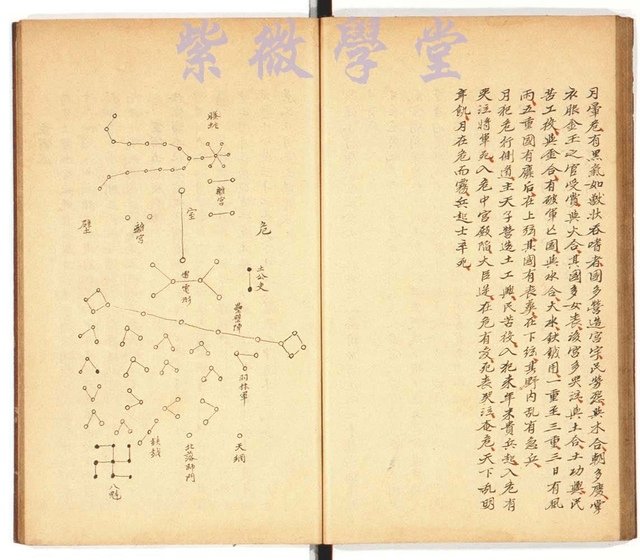 紫微學堂
月暈危有黑氣如獸狀吞啫者國多營造宮宗民勞怨與水合朝多慶賞
衣服金玉之官受賞與火合其國多女喪後宮多哭泣與土合土功興民
苦工役與金合有破軍亡國與水合大水鈇鉞用一重至三重三日有風
雨五重國有殯后在上弦其國有喪葬在下弦其野內亂有急兵
月犯危行側道主天子營造土工興民苦役入犯來年米貴兵起入危有
哭泣將軍死入危中宮殿陷大臣逆在危有变死喪哭泣食危天下乱明
年飢月在危而霧兵起士卒死
螣蛇
離宮
室
危
離宮
壁
土公吏
雷電形
壘壁陣
羽林軍
天綱
北落師門
鈇鉞
八魁